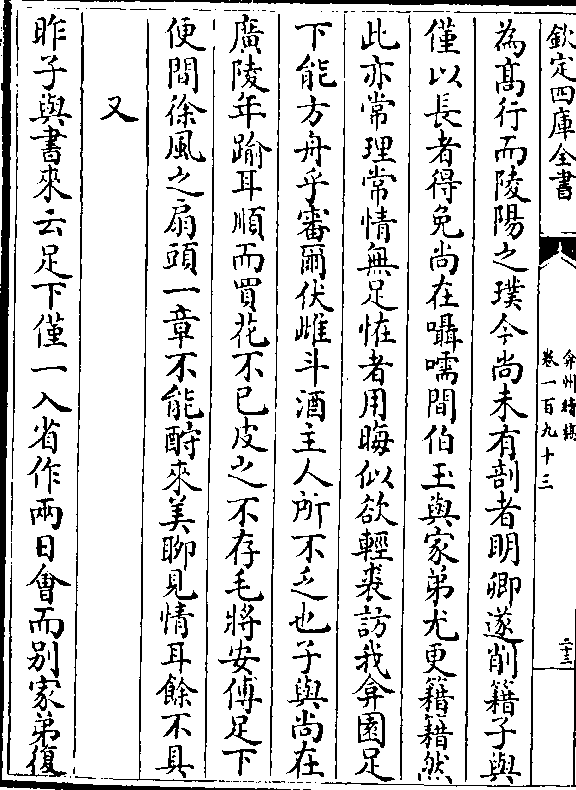 欽定四庫全書
弇州續稿
卷一百九十三
二十三
為髙行而陵陽之璞今尚未有剖者明卿遂削籍子與
僅以長者得免尚在囁嚅間伯玉與家弟尤更籍籍然
此亦常理常情無足恠者用晦似欲輕裘訪我弇園足
下能方舟乎審爾伏雌斗酒主人所不乏也子與尚在
廣陵年踰耳順而買花不已皮之不存毛將安傅足下
便間徐風之扇頭一章不能酧來美聊見情耳餘不具
又
昨子與書來云足下僅一入省作兩日㑹而别家弟復